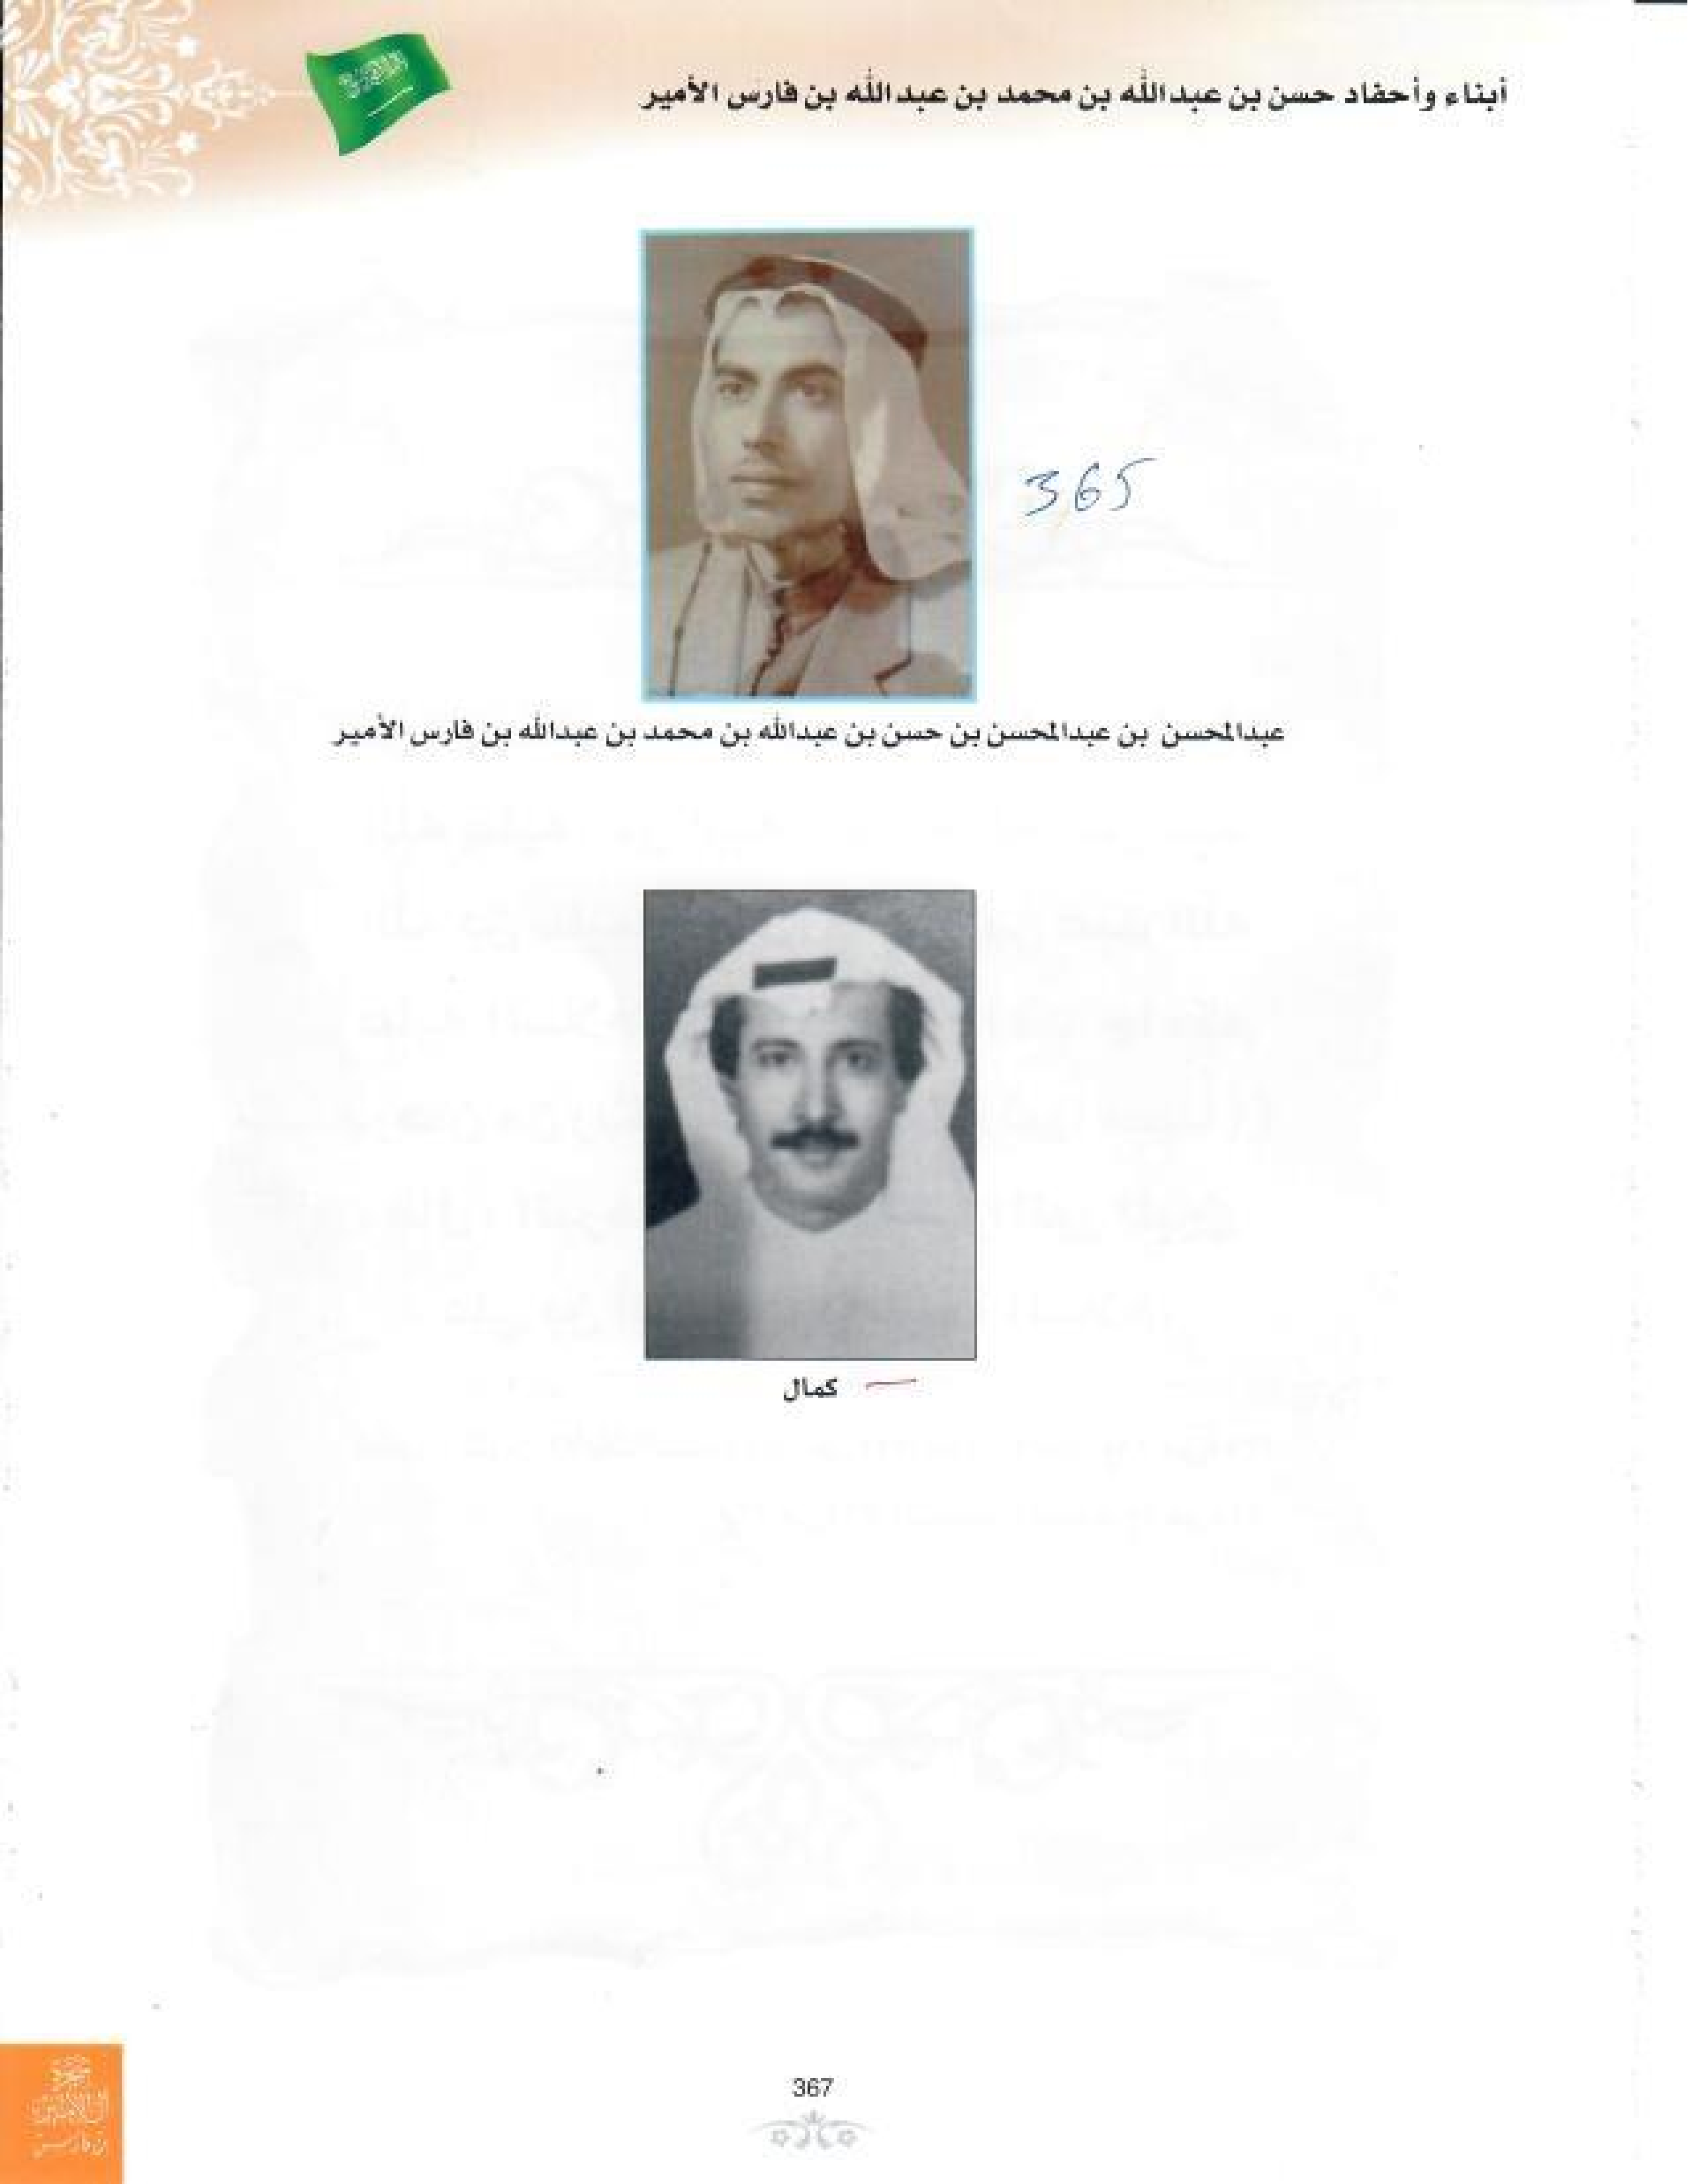 أبناء وأحفاد حسن بن عبدالله بن محمد بن عبدالله بن فارس الأمير
365
عبدالمحسن بن عبدالمحسن بن حسن بن عبدالله بن محمد بن عبدالله بن فارس الأمير
كمال
367